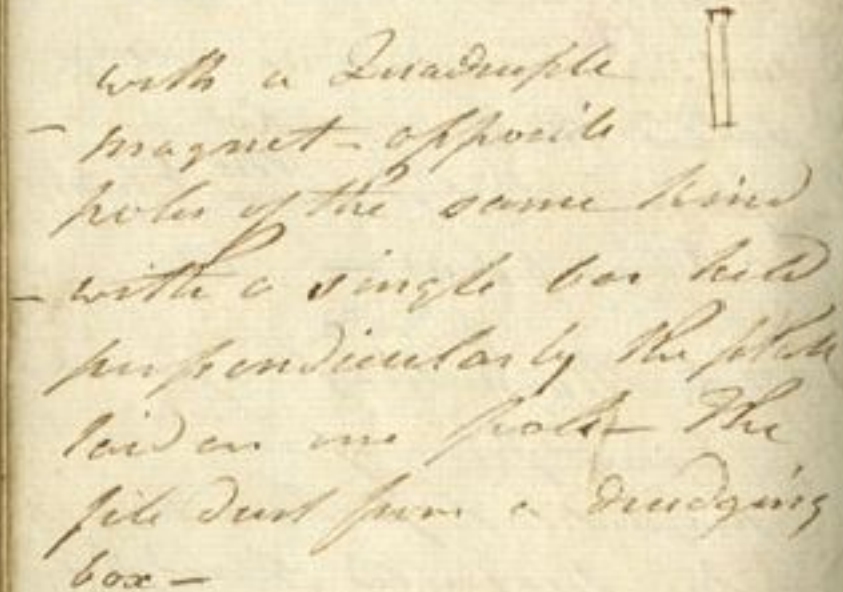 with a Quadruple
– magnet – opposite
poles of the same kind
– with a single bar held
perpendicularly the plate
laid on one pole – The
file dust from a drudging
box –